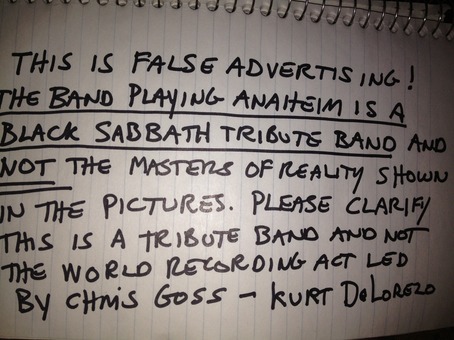 THIS IS FALSE ADVERTISING!
THE BAND PLAYING ANAHEIM IS A
BLACK SABBATH TRIBUTE BAND AND
NOT THE MASTERS OF REALITY SHOWN
IN THE PICTURES. PLEASE CLARIFY
THIS IS A TRIBUTE BAND AND NOT
THE WORLD RECORDING ACT LED
BY CHRIS GOSS - KURT DELOREZO